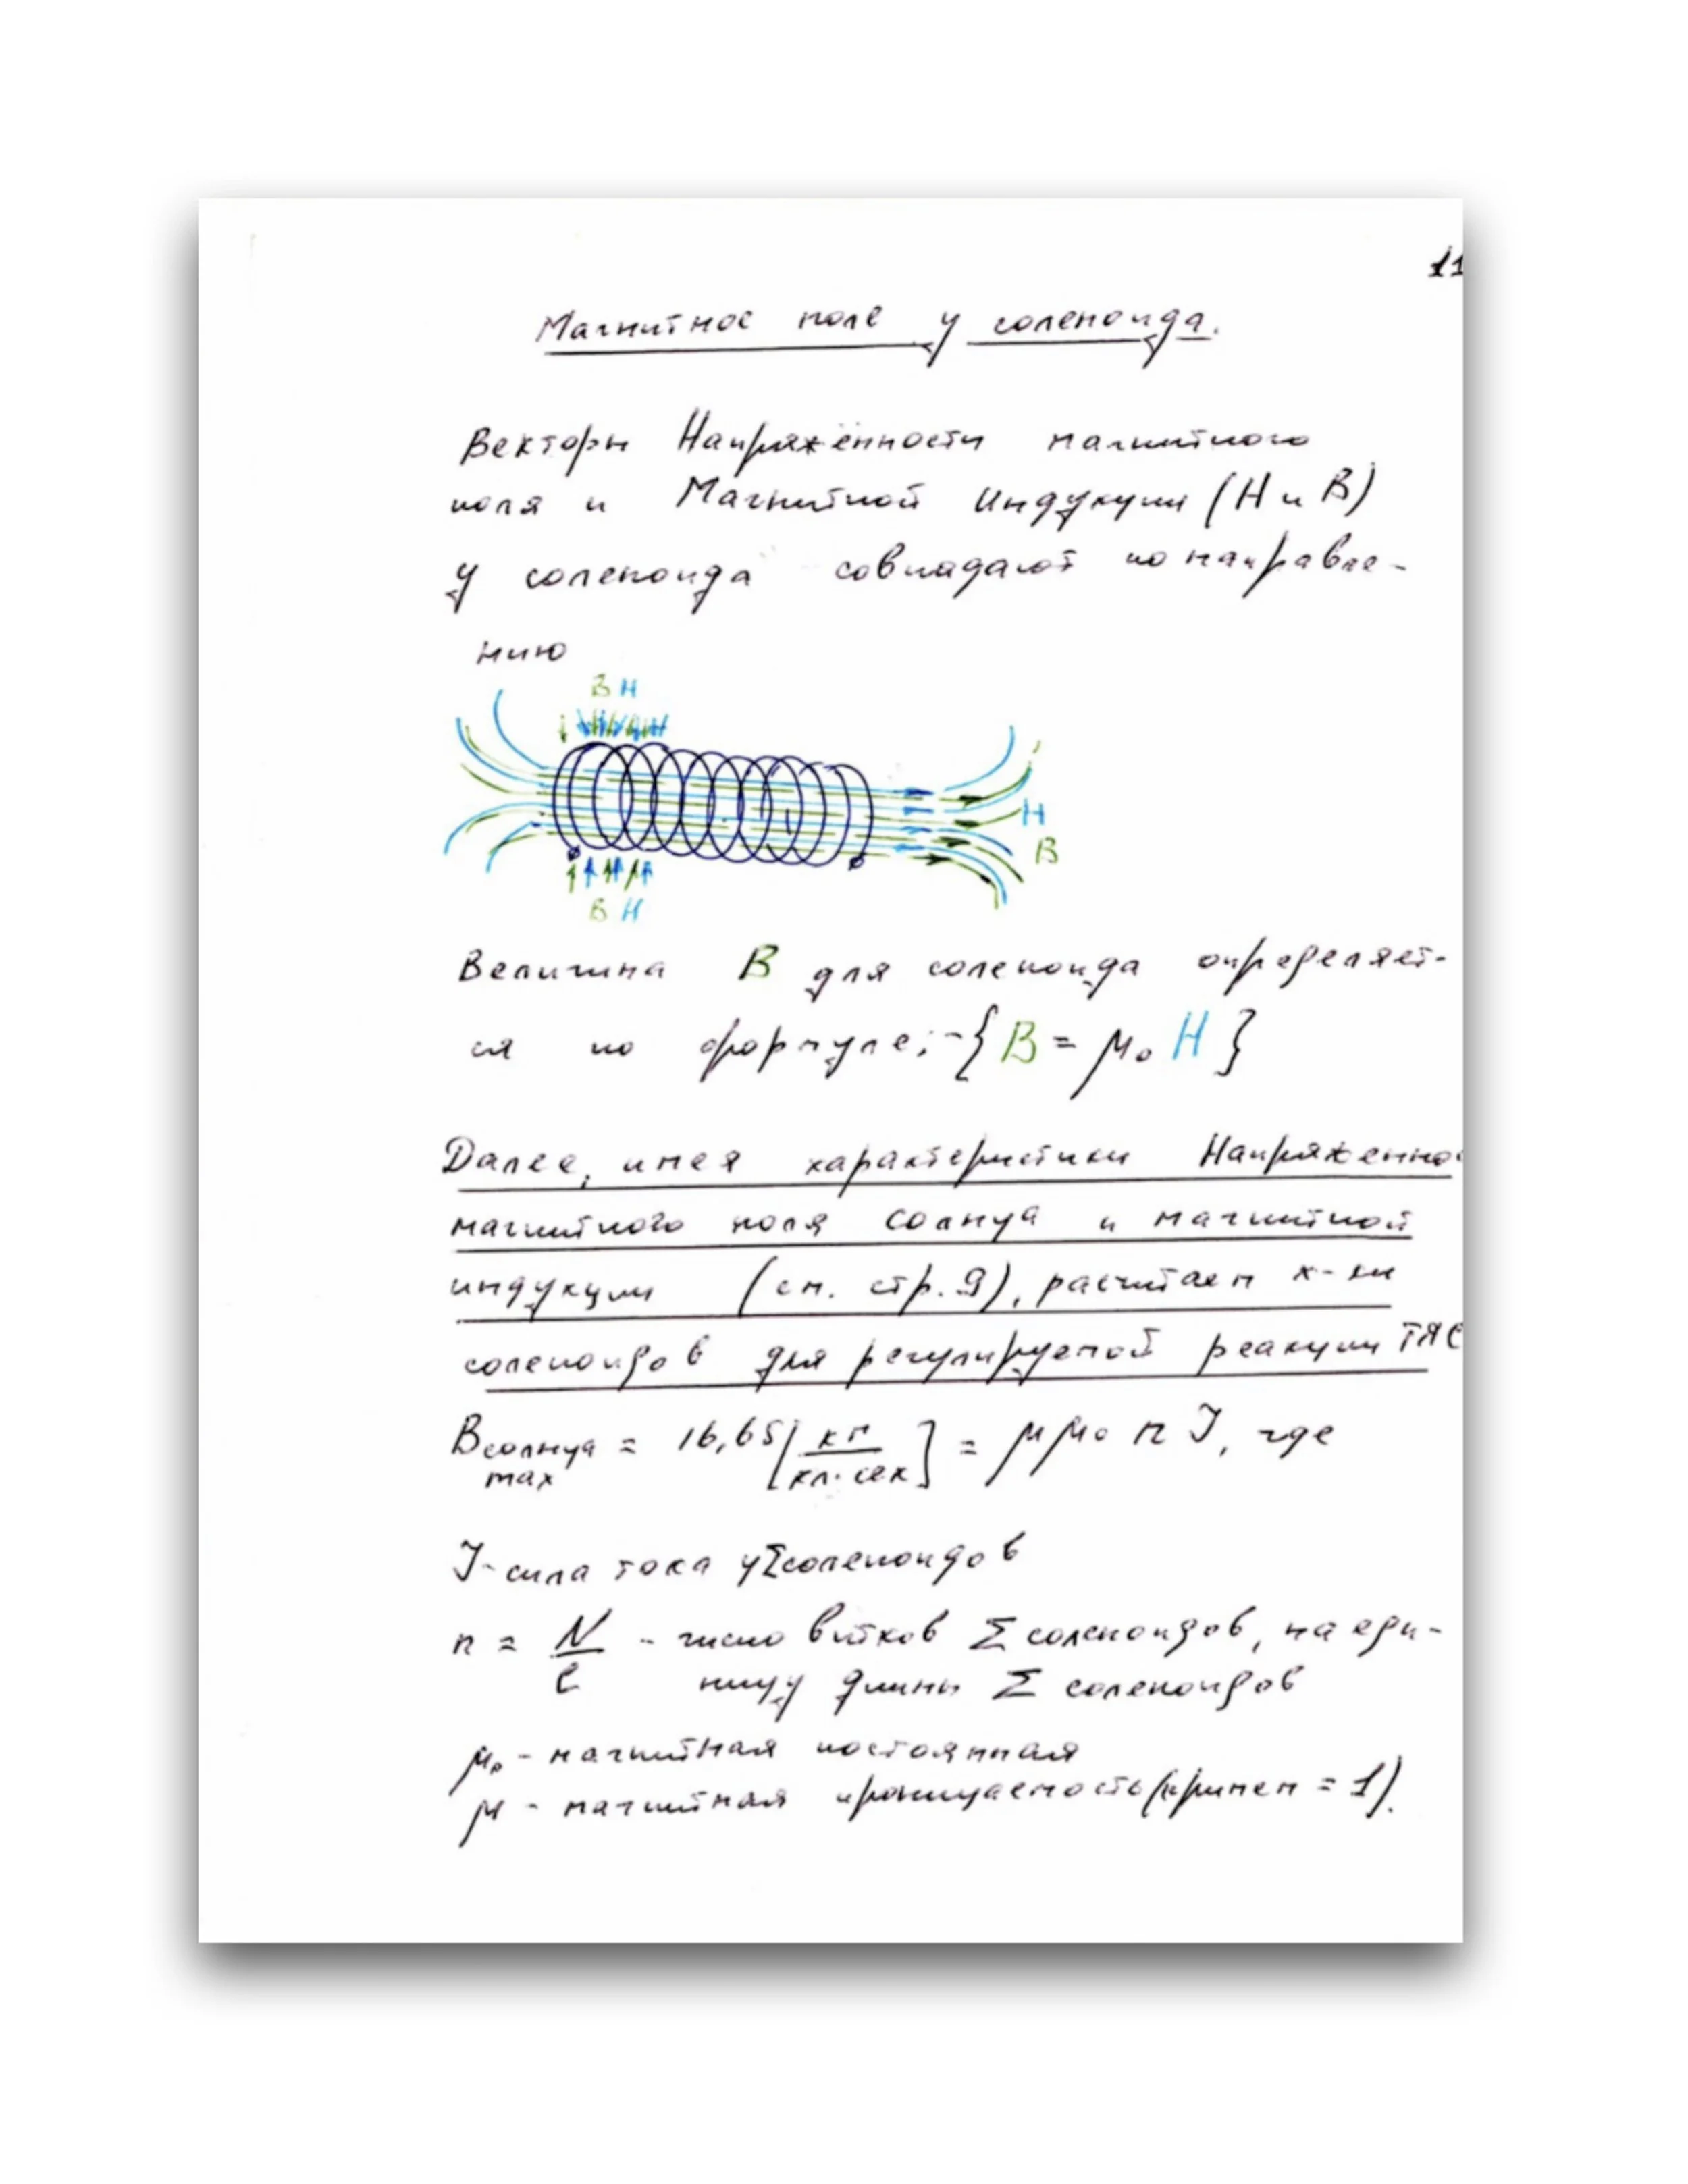 11
Магнитное поле у соленоида.
Векторы Напряжённости магнитного
поля и Магнитной Индукции (H и B)
у соленоида совпадают по направле-
нию
B H
H
B
B H
Величина B для соленоида определяет-
ся по формуле:-{B = μ₀ H}
Далее, имея характеристики Напряженнос
магнитного поля Солнца и магнитной
индукции (см. стр. 9), расчитаем х-ки
соленоидов для регулируемой реакции ТЯС
Bсолнца max = 16,65 [кг/кл·сек] = μ μ₀ n J, где
J - сила тока у Σ соленоидов
n = N/l - число витков Σ соленоидов, на еди-
ницу длины Σ соленоидов
μ₀ - магнитная постоянная
μ - магнитная проницаемость (примем = 1).